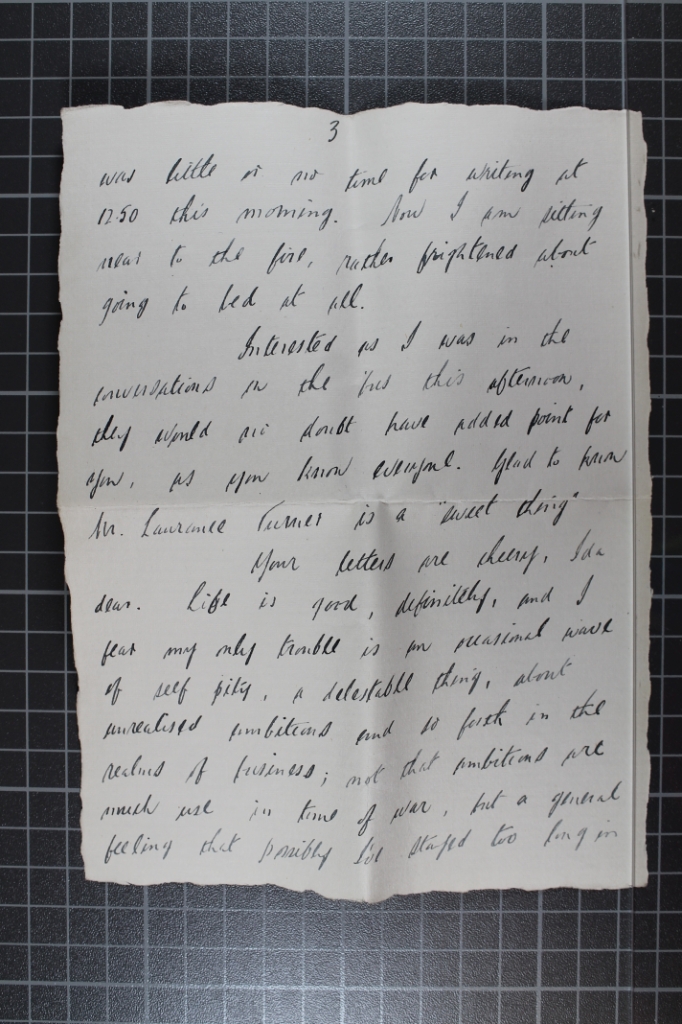 3
was little or no time for writing at
12.50 this morning. Now I am sitting
near to the fire, rather frightened about
going to bed at all.
Interested as I was in the
conversations on the 'bus this afternoon,
they would no doubt have added point for
you, as you know everyone. Glad to know
Mr. Laurance Turner is a "sweet thing"
Your letters are cheery, Ida
dear. Life is good, definitely, and I
fear my only trouble is an occasional wave
of self pity, a detestable thing, about
unrealised ambitions and so forth in the
realms of business; not that ambitions are
much use in time of war, but a general
feeling that possibly I've stayed too long in